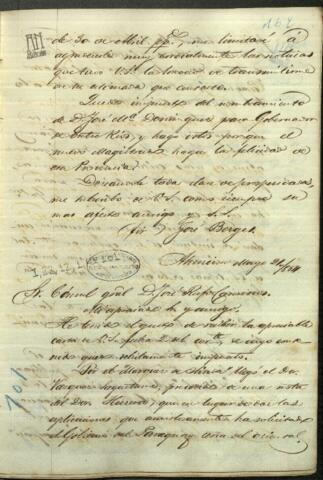 162
de 30 de Abril ppdo, me limitaré á
agradecerle muy cordialmente las noticias
que tuvo V.S. la bondad de transmitirme
en su estimada que contesto.
Quedo impuesto del nombramiento
de D. José Ma. Dominguez para Gobernador
de Entre Rios, y hago votos porque el
nuevo Magistrado haga la felicidad de
esa Provincia.
Deseandole toda clase de prosperidades,
me suscribo de V.S. como siempre su
mas afecto amigo y S.S.
José Berges
Asuncion Mayo 21/64
Sr. Cónsul gral. D. José Rufo Caminos.
Mi apreciado Sr. y amigo.
He tenido el gusto de recibir la apreciable
carta de V.S. fecha 2 del corrte. de cuyo conte-
nido quedo
Por el Marques de Olinda llegó el Dor.
Vazquez Sagastume,
del Dor. Herrera, que en lugar de dar las
esplicaciones que amistosamente ha solicitado
el Gobierno del Paraguay
101